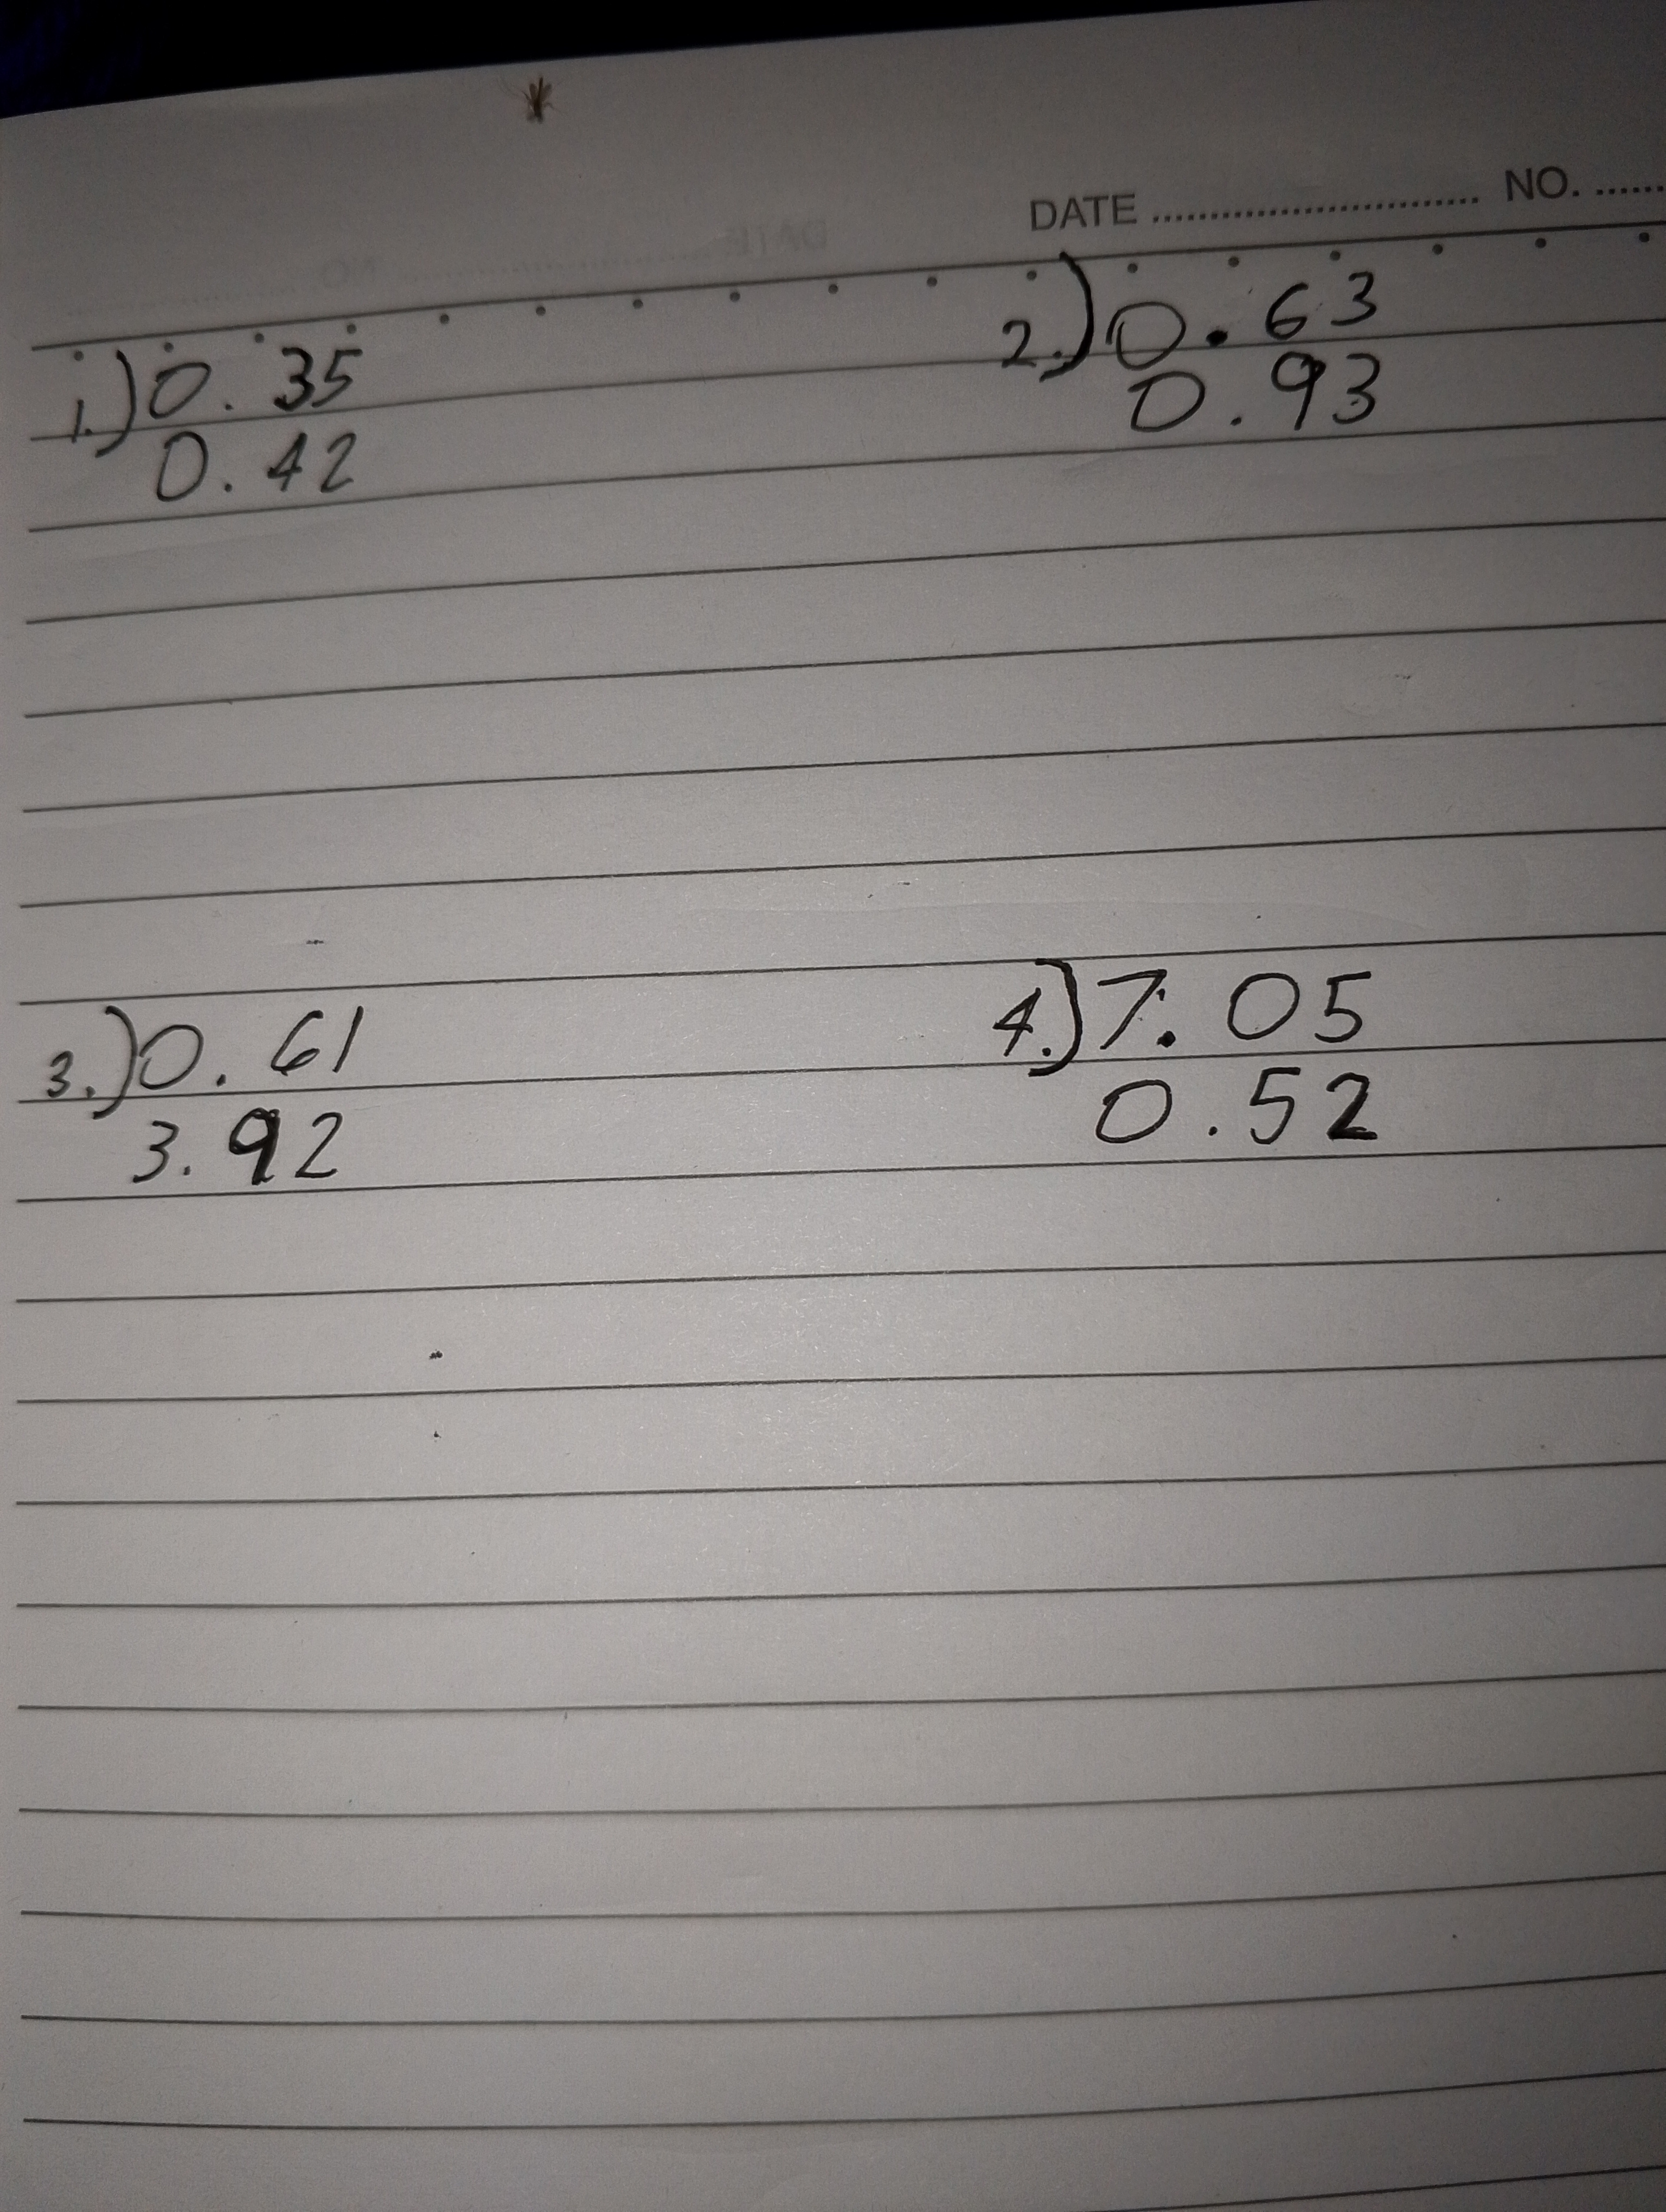 DATE ........................ NO. ......
1.) 0.35
0.42
2.) 0.63
0.93
3.) 0.61
3.92
4.) 7.05
0.52